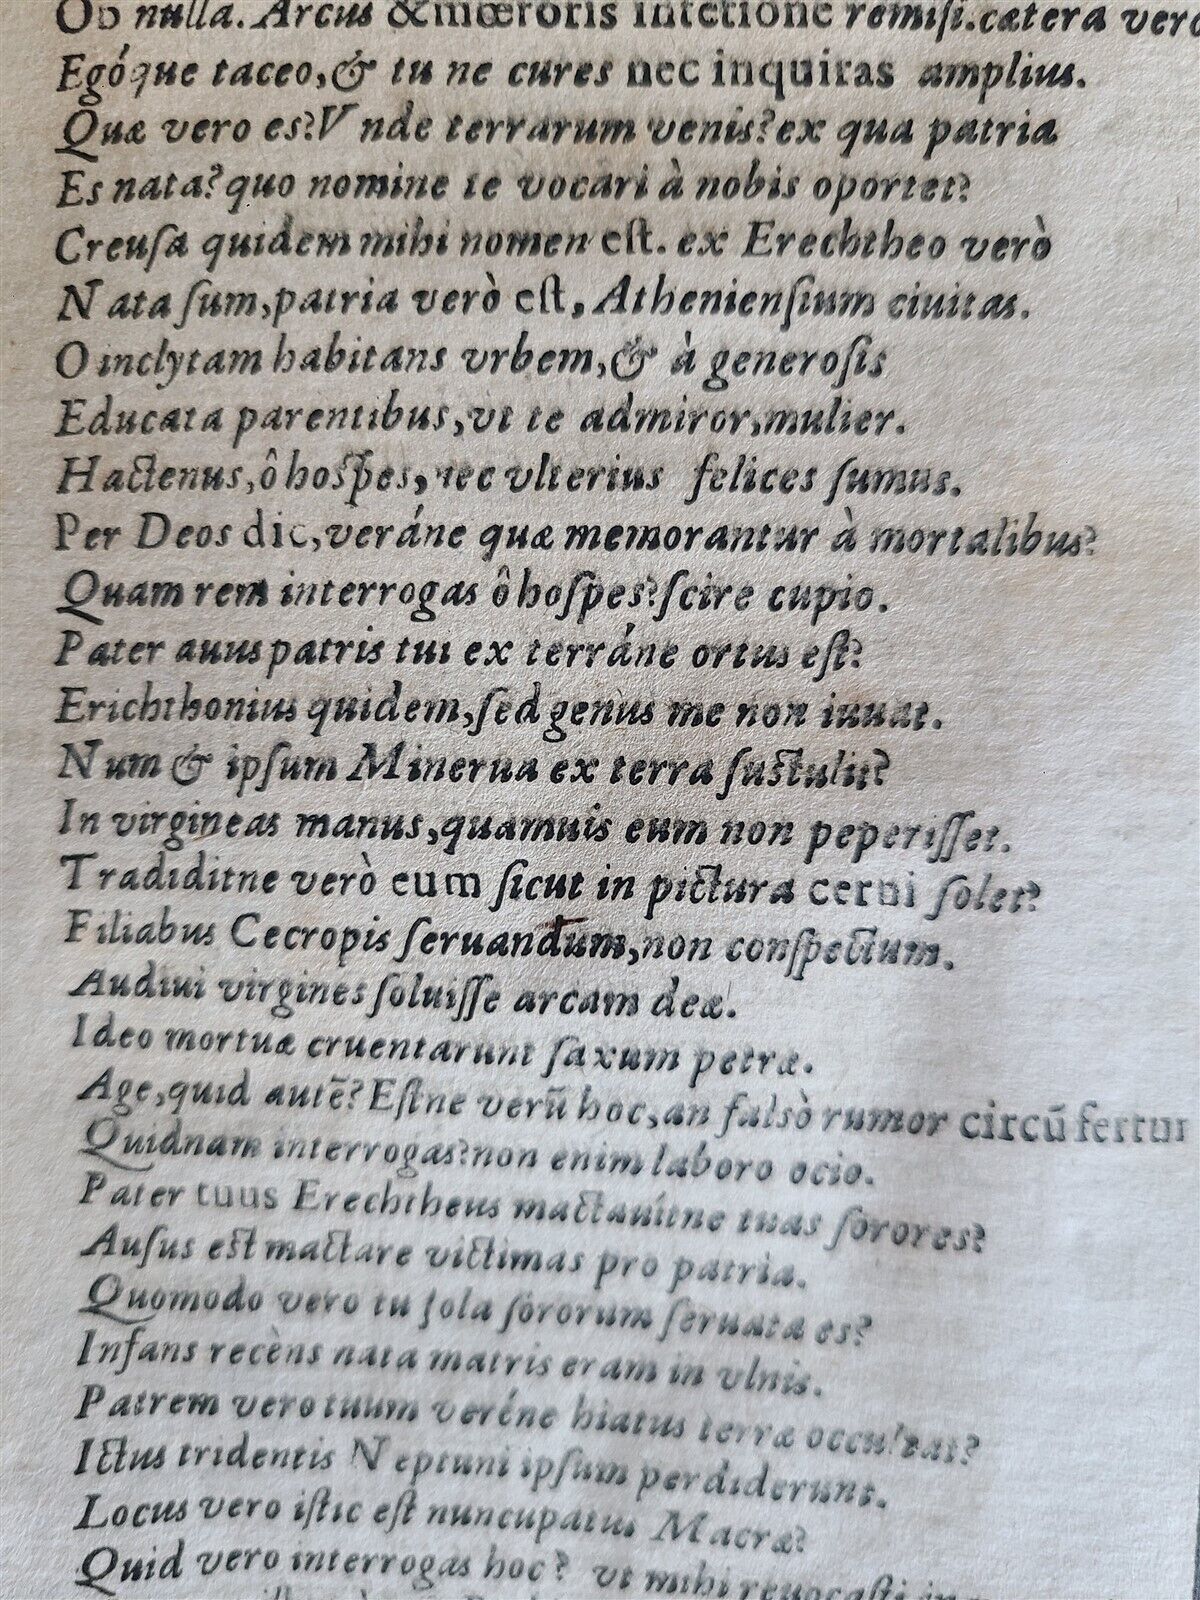 Ob nulla. Arcus & mœroris intētione remiſi. cætera verò
Egóque taceo, & tu ne cures nec inquiras amplius.
Quæ vero es? Vnde terrarum venis? ex qua patria
Es nata? quo nomine te vocari à nobis oportet?
Creuſa quidem mihi nomen eſt. ex Erechtheo verò
Nata ſum, patria verò eſt, Athenienſium ciuitas.
O inclytam habitans vrbem, & à generoſis
Educata parentibus, vt te admiror, mulier.
Hactenus, ô hoſpes, nec vlterius felices ſumus.
Per Deos dic, veráne quæ memorantur à mortalibus?
Quam rem interrogas ô hoſpes? ſcire cupio.
Pater auus patris tui ex terráne ortus eſt?
Erichthonius quidem, ſed genus me non iuuat.
Num & ipſum Minerua ex terra ſuſtulit?
In virgineas manus, quamuis eum non peperiſſet.
Tradiditne verò eum ſicut in pictura cerni ſolet?
Filiabus Cecropis ſeruandum, non conſpectum.
Audiui virgines ſoluiſſe arcam deæ.
Ideo mortuæ cruentarunt ſaxum petræ.
Age, quid autē? Eſtne verū hoc, an falsò rumor circū fertur
Quidnam interrogas? non enim laboro ocio.
Pater tuus Erechtheus mactauítne tuas ſorores?
Auſus eſt mactare victimas pro patria.
Quomodo vero tu ſola ſororum ſeruata es?
Infans recèns nata matris eram in vlnis.
Patrem vero tuum veréne hiatus terræ occultat?
Ictus tridentis Neptuni ipſum perdiderunt.
Locus vero iſtic eſt nuncupatus Macræ?
Quid vero interrogas hoc? vt mihi reuocaſti in